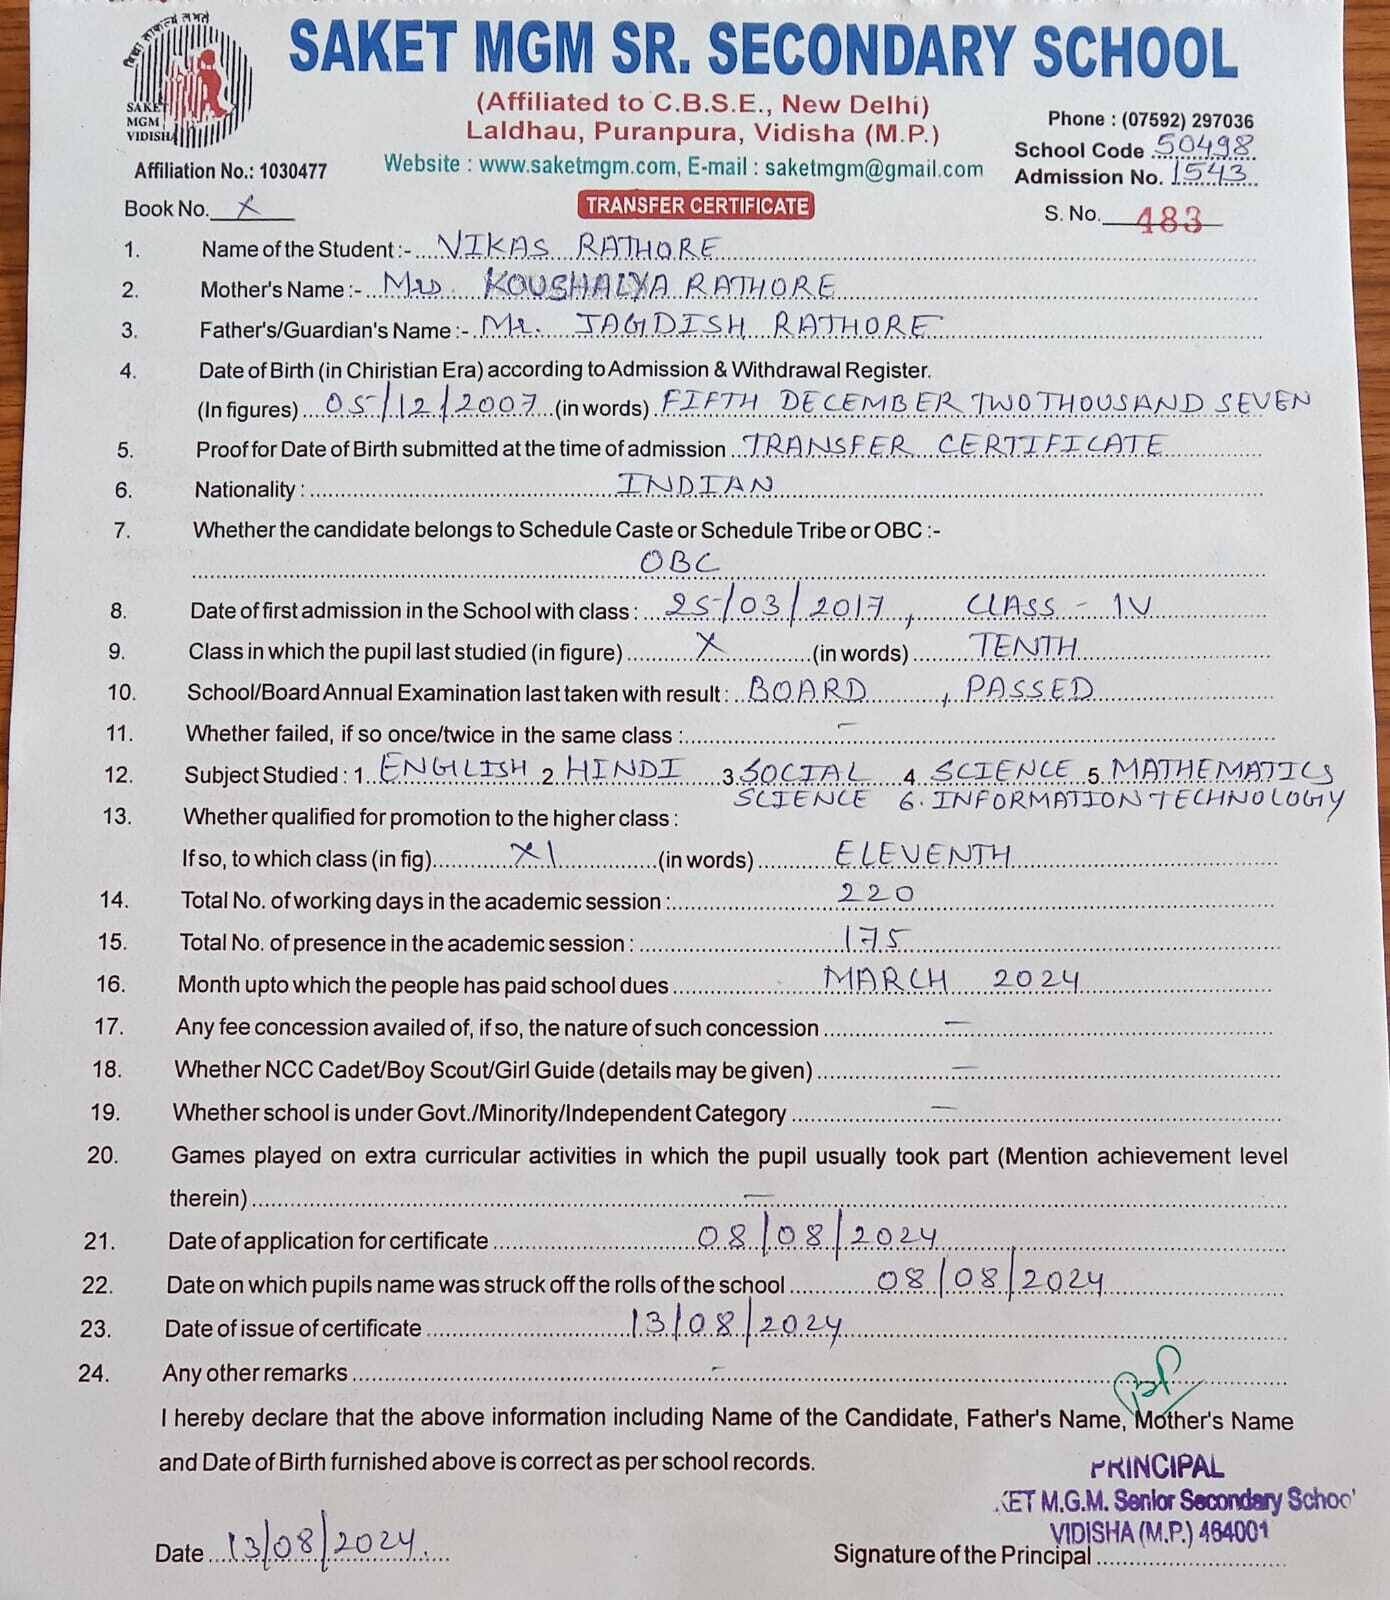 SAKET MGM SR. SECONDARY SCHOOL
(Affiliated to C.B.S.E., New Delhi)
Laldhau, Puranpura, Vidisha (M.P.)
Website : www.saketmgm.com, E-mail : saketmgm@gmail.com
SAKET
MGM
VIDISHA
Affiliation No.: 1030477
Phone : (07592) 297036
School Code 50498
Admission No. 1543
Book No. X
TRANSFER CERTIFICATE
S. No. 483
1. Name of the Student :- VIKAS RATHORE
2. Mother's Name :- Mrs. KOUSHALYA RATHORE
3. Father's/Guardian's Name :- Mr. JAGDISH RATHORE
4. Date of Birth (in Chiristian Era) according to Admission & Withdrawal Register.
(In figures) 05/12/2007 (in words) FIFTH DECEMBER TWO THOUSAND SEVEN
5. Proof for Date of Birth submitted at the time of admission TRANSFER CERTIFICATE
6. Nationality : INDIAN
7. Whether the candidate belongs to Schedule Caste or Schedule Tribe or OBC :-
OBC
8. Date of first admission in the School with class : 25/03/2017, CLASS - IV
9. Class in which the pupil last studied (in figure) X (in words) TENTH
10. School/Board Annual Examination last taken with result : BOARD , PASSED
11. Whether failed, if so once/twice in the same class : -
12. Subject Studied : 1. ENGLISH 2. HINDI 3. SOCIAL 4. SCIENCE 5. MATHEMATICS
SCIENCE 6. INFORMATION TECHNOLOGY
13. Whether qualified for promotion to the higher class :
If so, to which class (in fig) XI (in words) ELEVENTH
14. Total No. of working days in the academic session : 220
15. Total No. of presence in the academic session : 175
16. Month upto which the people has paid school dues MARCH 2024
17. Any fee concession availed of, if so, the nature of such concession -
18. Whether NCC Cadet/Boy Scout/Girl Guide (details may be given) -
19. Whether school is under Govt./Minority/Independent Category -
20. Games played on extra curricular activities in which the pupil usually took part (Mention achievement level
therein) -
21. Date of application for certificate 08/08/2024
22. Date on which pupils name was struck off the rolls of the school 08/08/2024
23. Date of issue of certificate 13/08/2024
24. Any other remarks -
I hereby declare that the above information including Name of the Candidate, Father's Name, Mother's Name
and Date of Birth furnished above is correct as per school records.
PRINCIPAL
KET M.G.M. Senior Secondary School
VIDISHA (M.P.) 464001
Date 13/08/2024.
Signature of the Principal